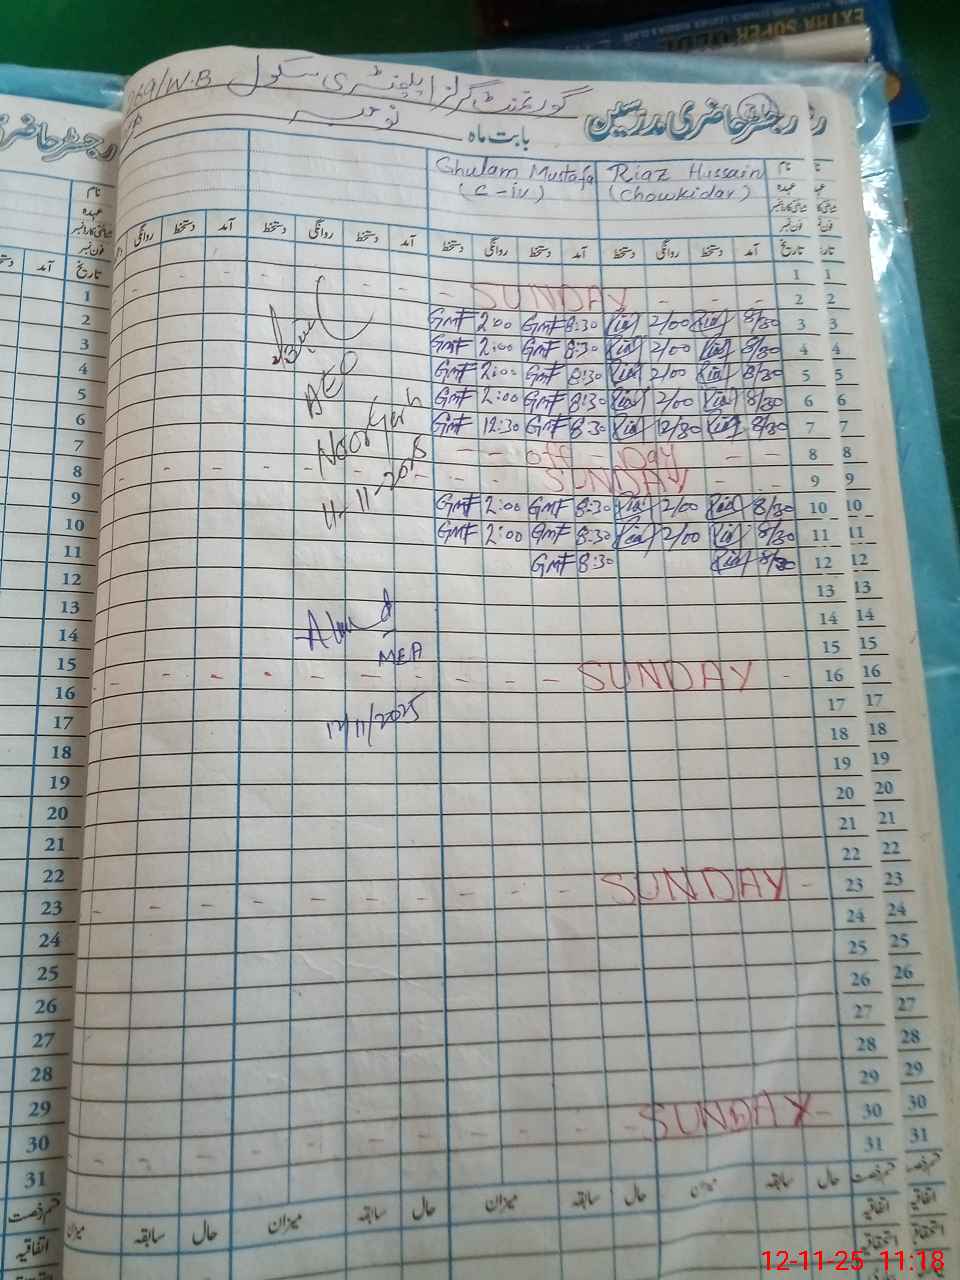 EXTRA SUPER
گورنمنٹ گرلز ایلیمنٹری سکول 269/W.B
رجسٹر حاضری مدرسین بابت ماہ نومبر
نام Riaz Hussain Ghulam Mustafa
عہدہ (Chowkidar) (C-iv)
فون نمبر
تاریخ آمد دستخط روانگی دستخط آمد دستخط روانگی دستخط آمد دستخط روانگی دستخط آمد دستخط روانگی
1
2 SUNDAY
3 8/30 Riaz 2/00 Riaz 8:30 GMF 2:00 GMF
4 8/30 Riaz 2/00 Riaz 8:30 GMF 2:00 GMF
5 8/30 Riaz 2/00 Riaz 8:30 GMF 2:00 GMF
6 8/30 Riaz 2/00 Riaz 8:30 GMF 2:00 GMF
7 8/30 Riaz 12/30 Riaz 8:30 GMF 12:30 GMF
8 off - Day
9 SUNDAY
10 8/30 Riaz 2/00 Riaz 8:30 GMF 2:00 GMF
11 8/30 Riaz 2/00 Riaz 8:30 GMF 2:00 GMF
12 8/30 Riaz 8:30 GMF
AEO
11-11-2025
13
14
15
MEA
16 SUNDAY
12/11/2025
17
18
19
20
21
22
23 SUNDAY
24
25
26
27
28
29
30 SUNDAY
31
قسم رخصت حال سابقہ میزان حال سابقہ میزان حال سابقہ میزان حال سابقہ
اتفاقیہ
12-11-25 11:18